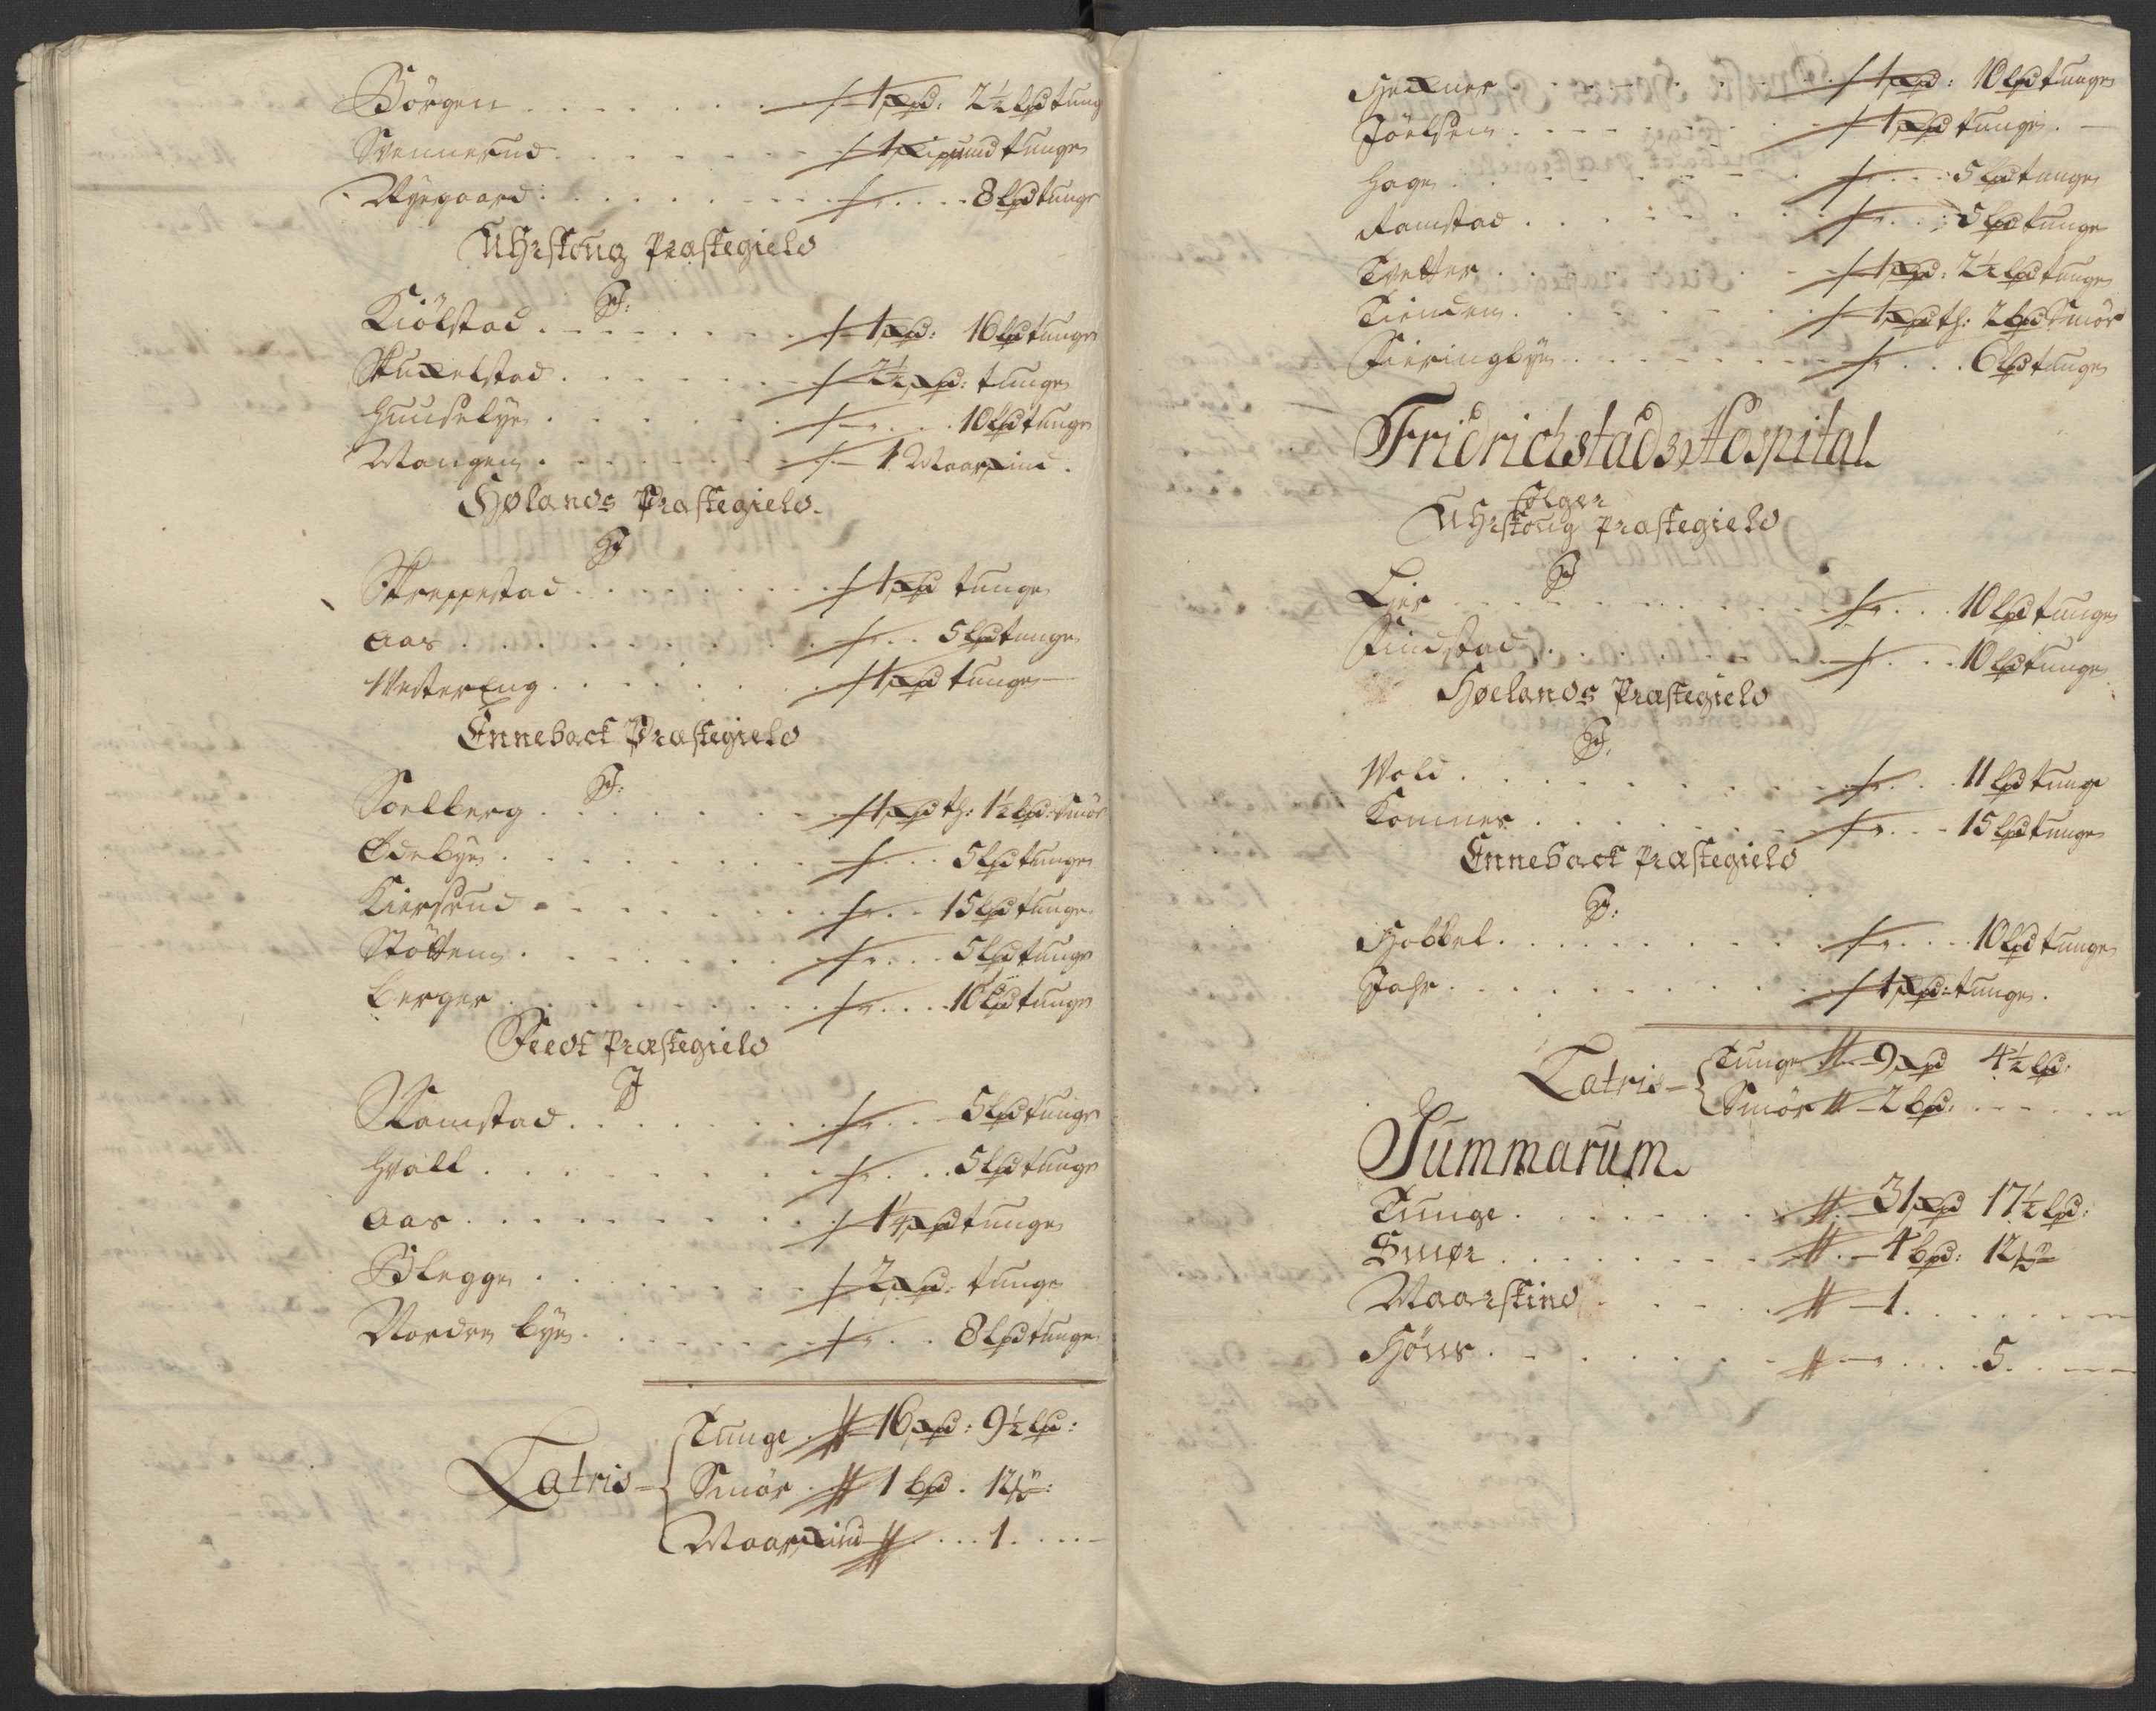 Börgen . . . . . . . 1 skpd: 2½ lpd tung
Svennerud . . . . . . . 1 Skippund tunge
Nyegaard . . . . . . . 8 lpd tunge
Uhrskoug Præstegield
Kiölstad . . . . . . . 1 skpd: 10 lpd tunge
Skukelstad . . . . . . . 2½ skpd: tunge
Huusebye . . . . . . . 10 lpd tunge
Mangen . . . . . . . 1 Maarskind.
Hølands Præstegield.
Skreppestad . . . . . . . 1 skpd tunge
Aas . . . . . . . 5 lpd tunge
Wester Eng . . . . . . . 1 skpd tunge
Enneback Præstegield
Soelberg . . . . . . . 1 skpd th: 1½ bpd: Smör
Ødebye . . . . . . . 5 lpd tunge
Kiersrud . . . . . . . 15 lpd tunge
Støtten . . . . . . . 5 lpd tunge
Berger . . . . . . . 10 lpd tunge
Feedt Præstegield
J
Ramstad . . . . . . . 5 lpd tunge
Hvall . . . . . . . 5 lpd tunge
Aas . . . . . . . 1¼ skpd tunge
Blegge . . . . . . . 2 skpd: tunge
Nordre bye . . . . . . . 8 lpd tunge
Latris
Tunge . 16 skpd: 9½ lpd:
Smör . 1 bpd . 12
Maarskind . . . 1 . . .
. . . . . . . 1 skpd: 10 lpd tunge
Jöelsen . . . . . . . 1 skpd tunge . —
Hage . . . . . . . 5 lpd tunge
Ramstad . . . . . . . 5 lpd tunge
Tvetter . . . . . . . 1 skpd: 2½ lpd tunge
Tienden . . . . . . . 1 skpd th: 2 bpd Smör
Fieringbye . . . . . . . 6 lpd tunge
Fridrichstads Hospital
følger
Uhrskoug Præstegield
Lier . . . . . . . 10 lpd tunge
Findstad . . . . . . . 10 lpd tunge
Høelands Præstegield
Wold . . . . . . . 11 lpd tunge
Komnes . . . . . . . 15 lpd tunge
Enneback Præstegield
Hobbel . . . . . . . 10 lpd tunge
Jahr . . . . . . . 1 skpd: tunge.
Latris
Tunge 9 skpd 4½ lpd:
Smör 2 bpd: . . . . .
Summarum.
Tunge . . . . . . . 31 skpd 17½ lpd:
Smør . . . . . . . 4 bpd: 12
Maarskind . . . . 1 . . . . .
Höns . . . . . . . 5 . . .